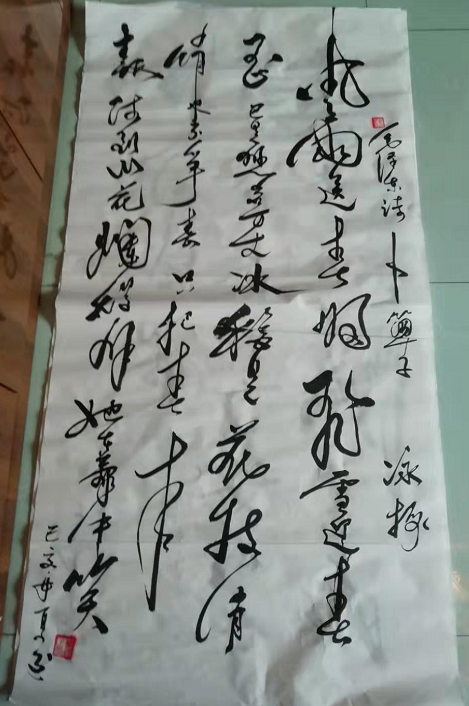 毛泽东诗 卜算子 咏梅
风雨送春归飞雪迎春
到已是悬崖百丈冰犹是花枝俏
俏也不争春只把春来
报待到山花爛漫时她在丛中笑
己亥年夏